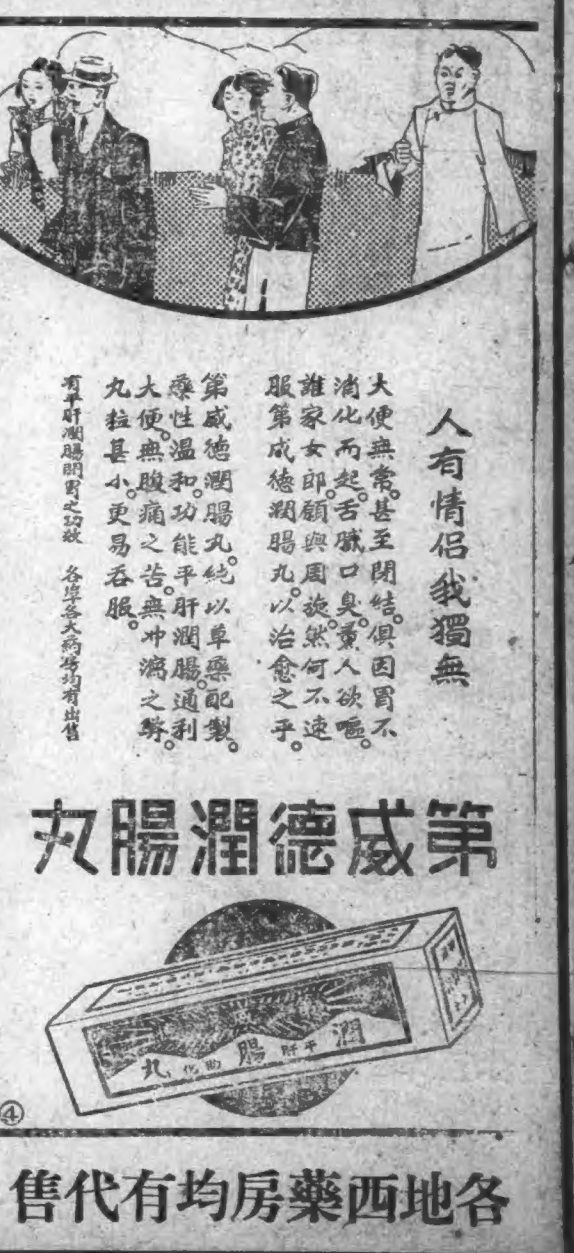 人有情侶我獨無
大便無常。甚至閉結。俱因胃不
消化而起。舌膩口臭。薰人欲嘔。
誰家女郎。願與周旋。然何不速
服第威德潤腸丸。以治愈之乎。
第威德潤腸丸。純以草藥配製。
藥性溫和。功能平肝潤腸。通利
大便。無腹痛之苦。無冲瀉之弊。
丸粒甚小。更易吞服。
有平肝潤腸開胃之功效 各埠各大药房均有出售
第威德潤腸丸
潤平肝腸助化丸
④
各地西藥房均有代售